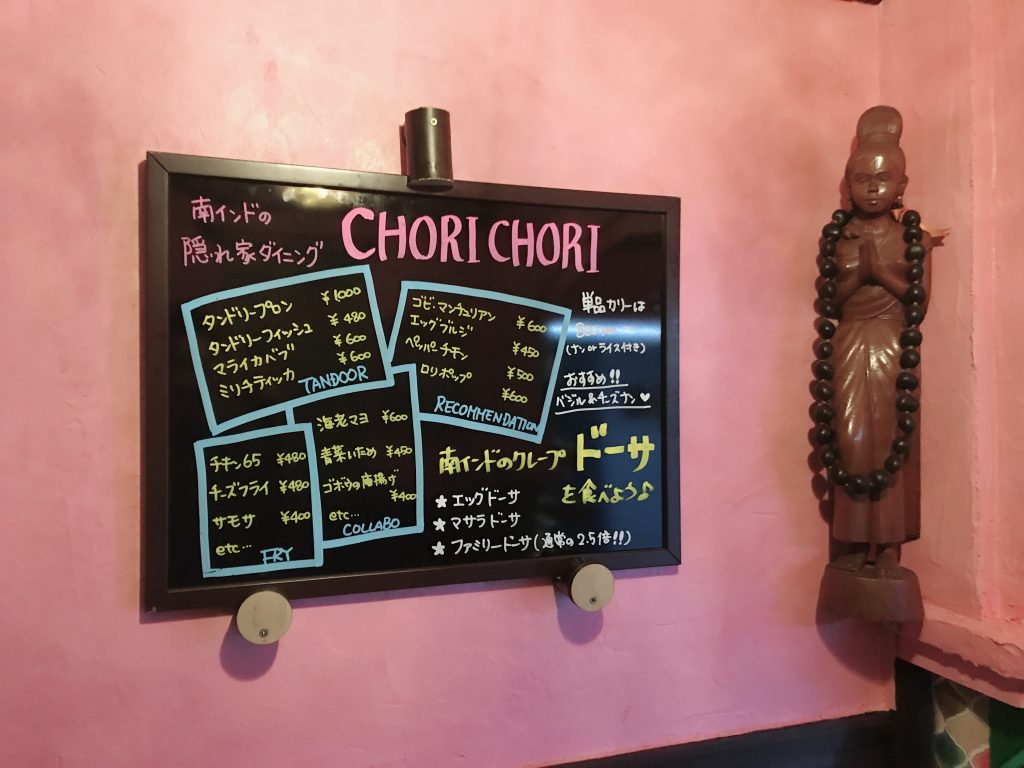 南インドの
隠れ家ダイニング
CHORI CHORI
タンドリープロン ¥1000
タンドリーフィッシュ ¥480
マライカバブ ¥600
ミリチティッカ ¥600
TANDOOR
ゴビ・マンチュリアン ¥600
エッグブルジ ¥450
ペッパーチキン ¥500
ロリポップ ¥600
RECOMMENDATION
単品カリーは
(ナンorライス付き)
おすすめ!!
バジル&チーズナン♥
海老マヨ ¥600
青菜いため ¥450
ゴボウの唐揚げ ¥400
etc…
COLLABO
チキン65 ¥480
チーズフライ ¥480
サモサ ¥400
etc…
FRY
南インドのクレープ ドーサ
を食べよう♪
★ エッグドーサ
★ マサラドーサ
★ ファミリードーサ(通常の2.5倍!!)